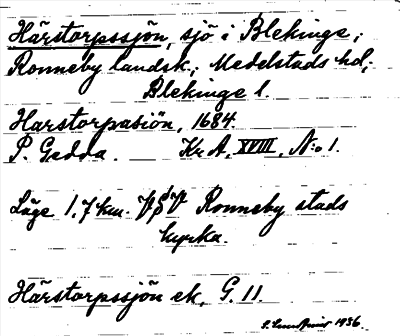 Härstorpssjön, sjö i Blekinge;
Ronneby landsk.; Medelstads hd;
Blekinge l.
Harstorpasiön, 1684.
P. Gedda. Kr A, XVIII, N:o 1.
Läge 1,7 km. VpdV Ronneby stads
kyrka.
Härstorpssjön ek. G. 11.
1936.